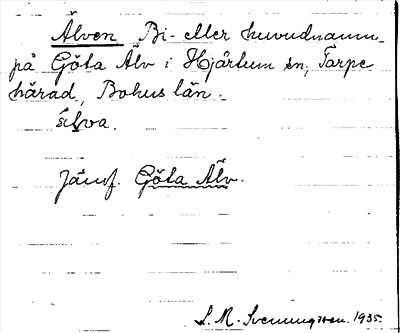 Älven Bi- eller huvudnamn
på Göta Älv i Hjärtum sn, Torpe
härad, Bohus län.
Jämf. Göta Älv.
S. M. Svenungsson. 1935.